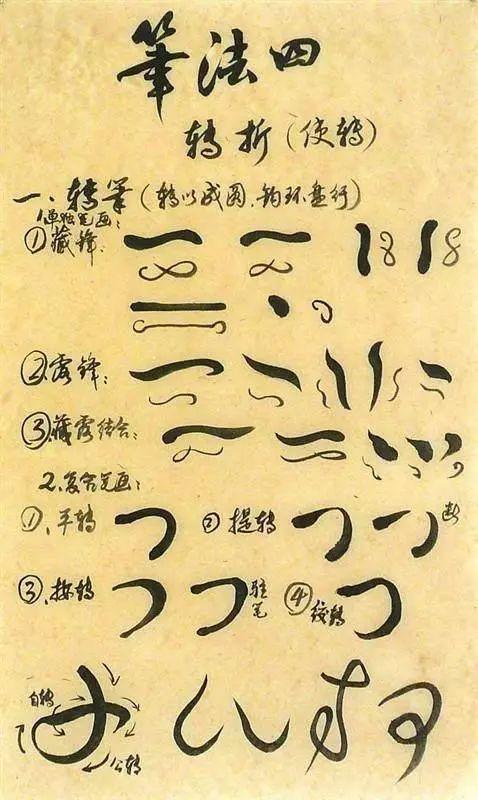 筆法四
转折（使转）
一、转筆（转以成圆、钩环盘行）
1单独笔画：
①藏锋：
②露锋：
③藏露结合：
2、复合笔画：
①、平转 ②提转 断
③、按转 驻笔 ④绞转
自转
公转